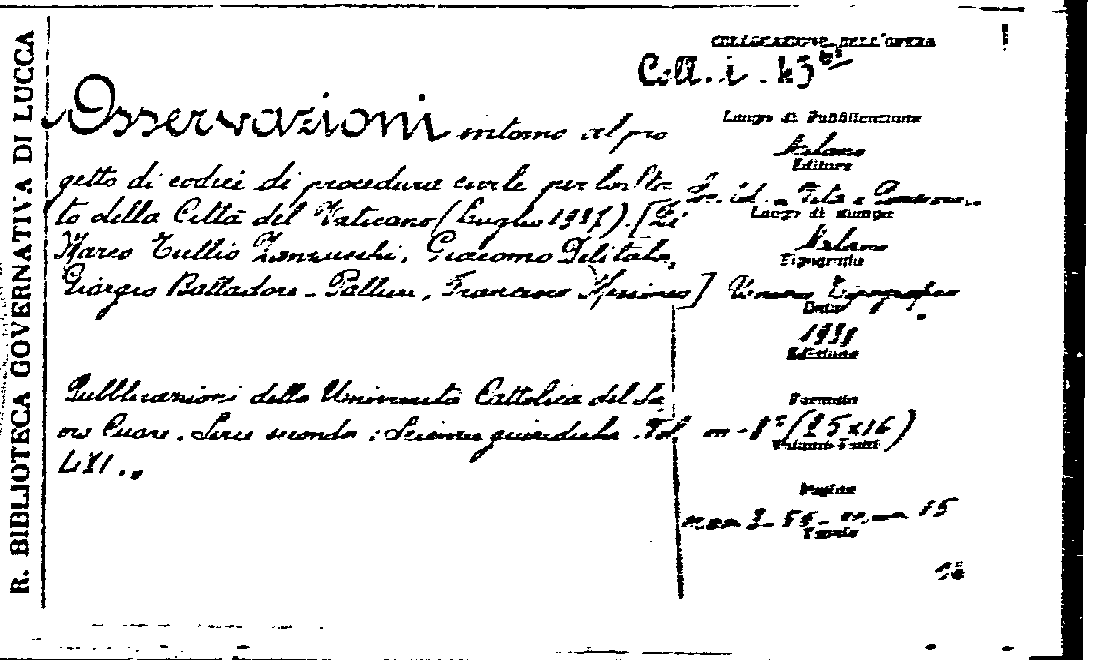 R. BIBLIOTECA GOVERNATIVA DI LUCCA
COLLOCAZIONE DELL'OPERA
Coll. i. 43 bis
Osservazioni intorno al pro
getto di codici di procedura civile per lo Sta
to della Città del Vaticano (Luglio 1938). [Di
Marco Tullio Zanzucchi, Giacomo Delitala,
Giorgio Balladore-Pallieri, Francesco Messineo]
Pubblicazioni della Università Cattolica del Sa
cro Cuore. Serie seconda: Scienze giuridiche. Vol.
LXI.
Luogo di Pubblicazione
Milano
Editore
Soc. ed. "Vita e Pensiero"
Luogo di stampa
Milano
Tipografia
Tipografica
Data
1938
Edizione
Formato
in-8° (25x16)
Volume
Pagine
55
15
Tavole